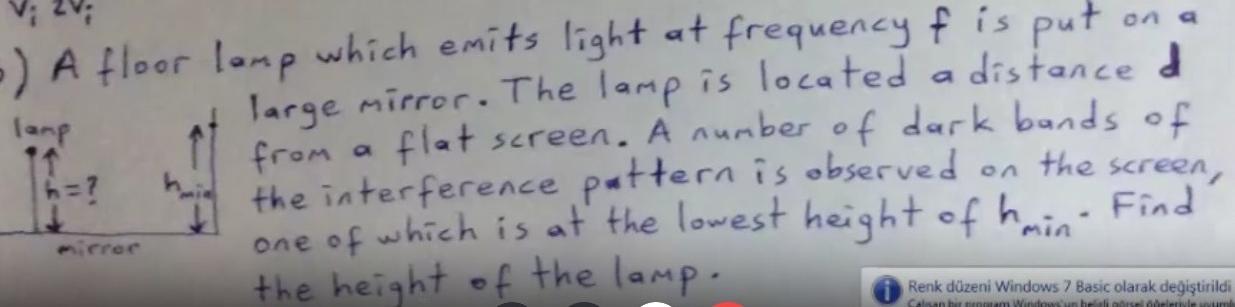 Vi 2Vi
) A floor lamp which emits light at frequency f is put on a
large mirror. The lamp is located a distance d
from a flat screen. A number of dark bands of
the interference pattern is observed on the screen,
one of which is at the lowest height of hmin. Find
the height of the lamp.
lamp
h=?
hmin
mirror
Renk düzeni Windows 7 Basic olarak değiştirildi
Çalışan bir program Windows'un belirli görsel öğeleriyle uyumlu